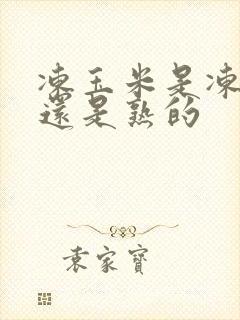 凍玉米是凍
還是熟的
袁家寶